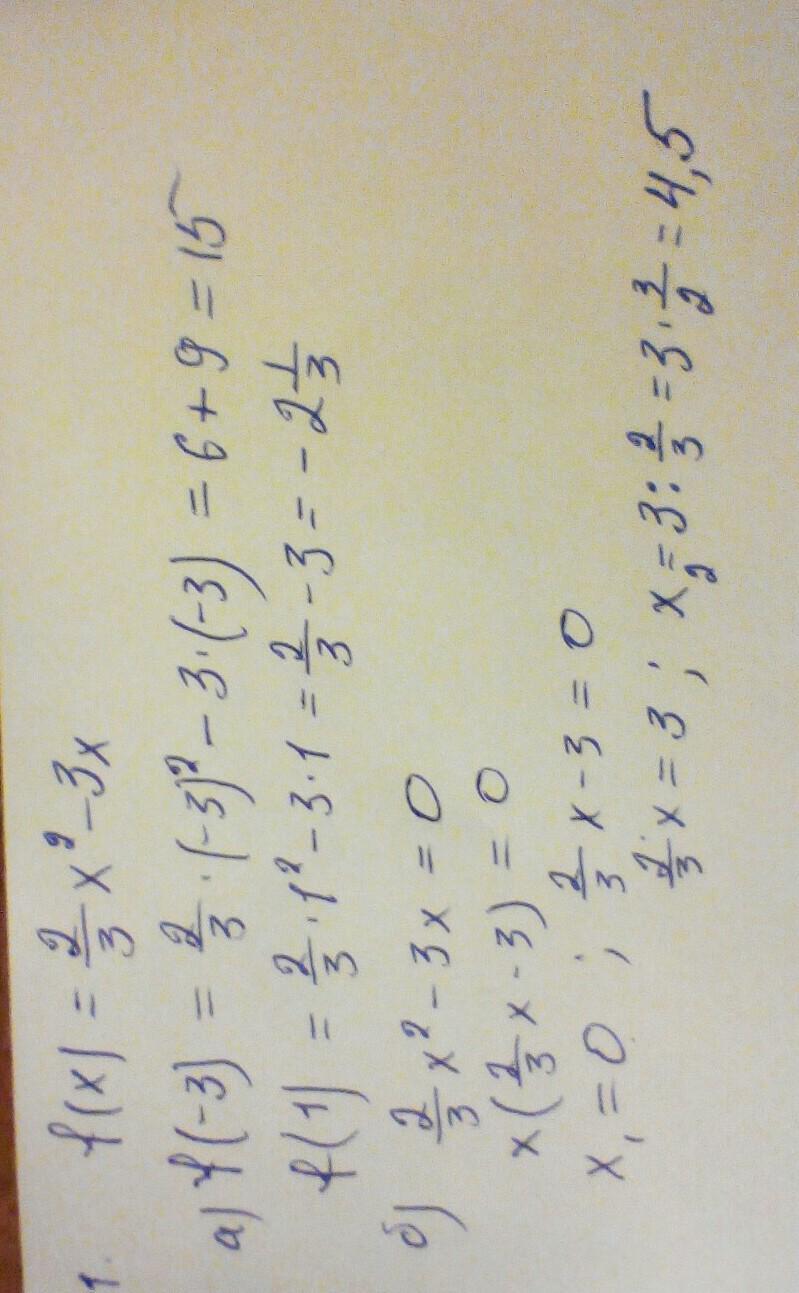 1. f(x) = 2/3 x² - 3x
а) f(-3) = 2/3 · (-3)² - 3 · (-3) = 6 + 9 = 15
f(1) = 2/3 · 1² - 3 · 1 = 2/3 - 3 = - 2 1/3
б) 2/3 x² - 3x = 0
x(2/3 x - 3) = 0
x₁ = 0 ; 2/3 x - 3 = 0
2/3 x = 3 ; x₂ = 3 : 2/3 = 3 · 3/2 = 4,5